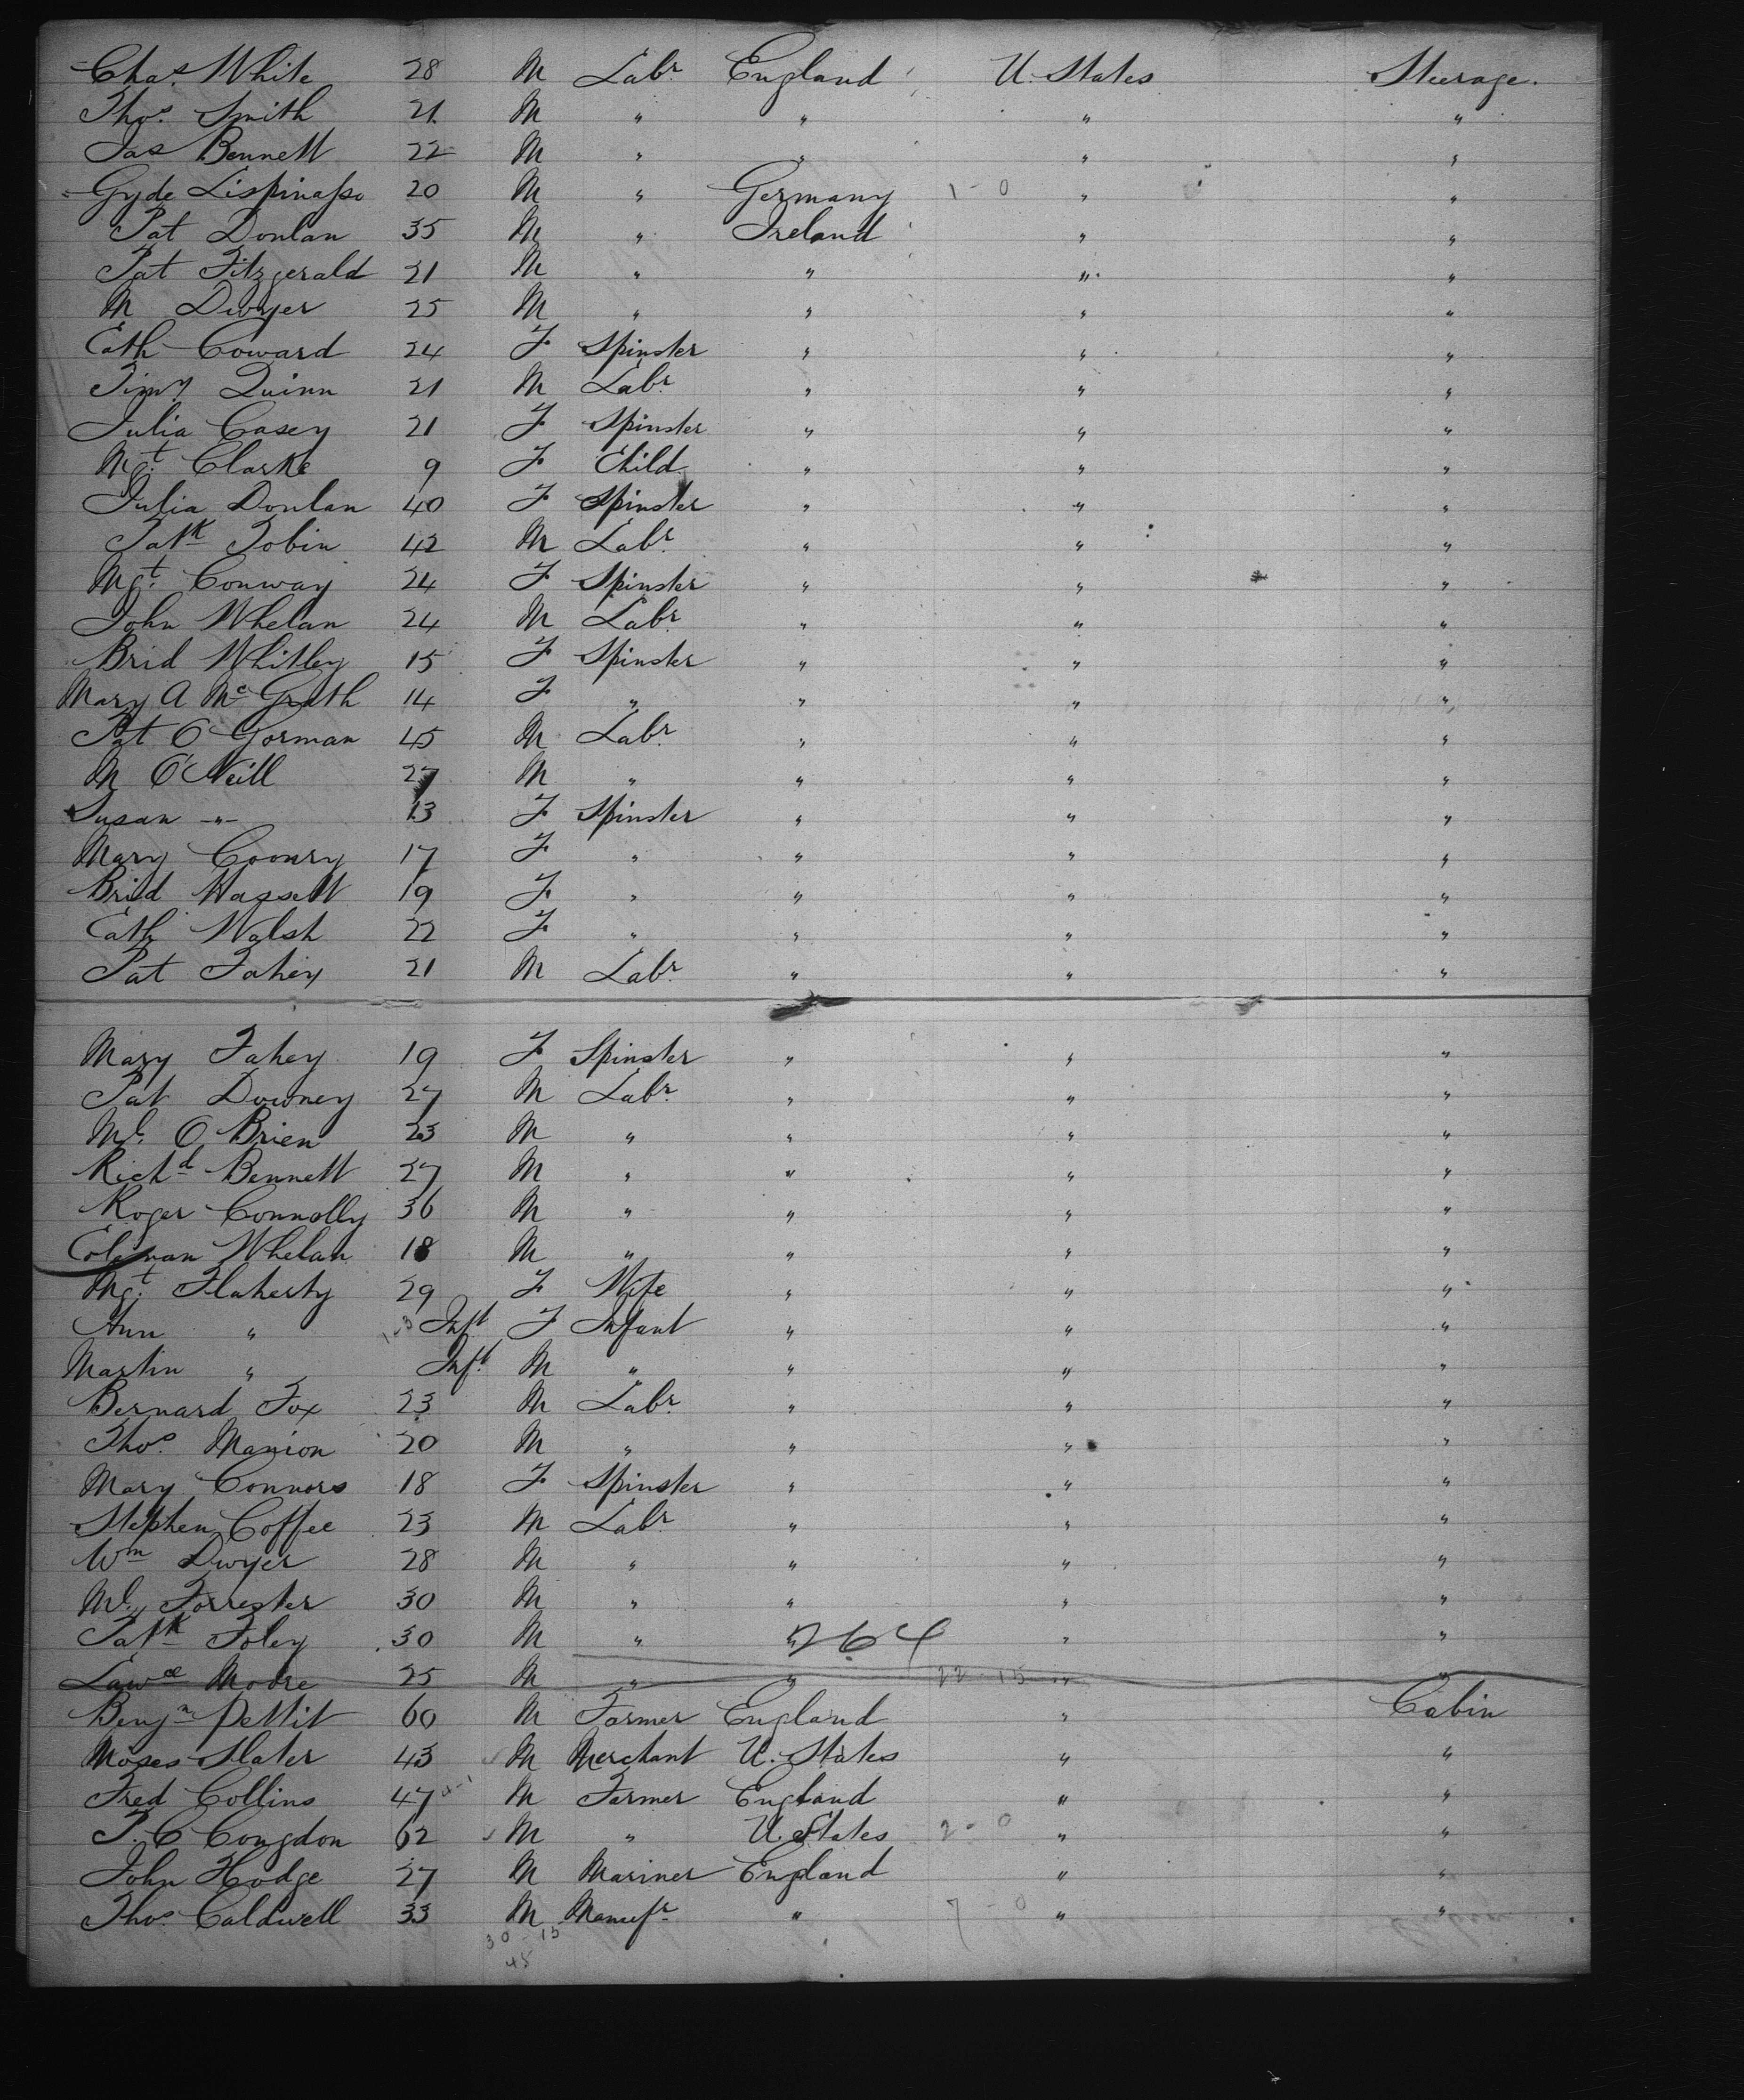 Chas. White 28 M Labr. England U. States Steerage.
Thos. Smith 21 M " " " "
Jas Bennett 22 M " " " "
Gyde Lispinasse 20 M " Germany 1-0 " "
Pat Donlan 35 M " Ireland " "
Pat Fitzgerald 21 M " " " "
M Dwyer 25 M " " " "
Cath Coward 24 F Spinster " " "
Timy. Quinn 21 M Labr. " " "
Julia Casey 21 F Spinster " " "
Mgt. Clarke 9 F Child " " "
Julia Donlan 40 F Spinster " " "
Patk Tobin 42 M Labr. " " "
Mgt. Conway 24 F Spinster " " "
John Whelan 24 M Labr. " " "
Brid Whitley 15 F Spinster " " "
Mary A McGrath 14 F " " " "
Pat O'Gorman 45 M Labr. " " "
M O'Neill 27 M " " " "
Susan " 13 F Spinster " " "
Mary Coonry 17 F " " " "
Brid Hassett 19 F " " " "
Cath Walsh 22 F " " " "
Pat Fahey 21 M Labr. " " "
Mary Fahey 19 F Spinster " " "
Pat Downey 27 M Labr. " " "
Ml. O Brien 23 M " " " "
Richd Bennett 27 M " " " "
Roger Connolly 36 M " " " "
Coleman Whelan 18 M " " " "
Mgt. Flaherty 29 F Wife " " "
Ann " 1-3 Inft F Infant " " "
Martin " Inft. M " " " "
Bernard Fox 23 M Labr. " " "
Thos. Manion 20 M " " " "
Mary Connors 18 F Spinster " " "
Stephen Coffee 23 M Labr. " " "
Wm Dwyer 28 M " " " "
Ml. Forrester 30 M " " " "
Patk Foley 30 M " " 264 " "
Lawce Moore 25 M " " 22-15 " "
Benjn Pettit 60 M Farmer England " Cabin
Moses Slater 43 M Merchant U. States " "
Fred Collins 47 M Farmer England " "
P. C Congdon 62 M " U. States 2-0 " "
John Hodge 27 M Mariner England " "
Thos. Caldwell 33 M Manufr. " 7-0 " "
30-15
45